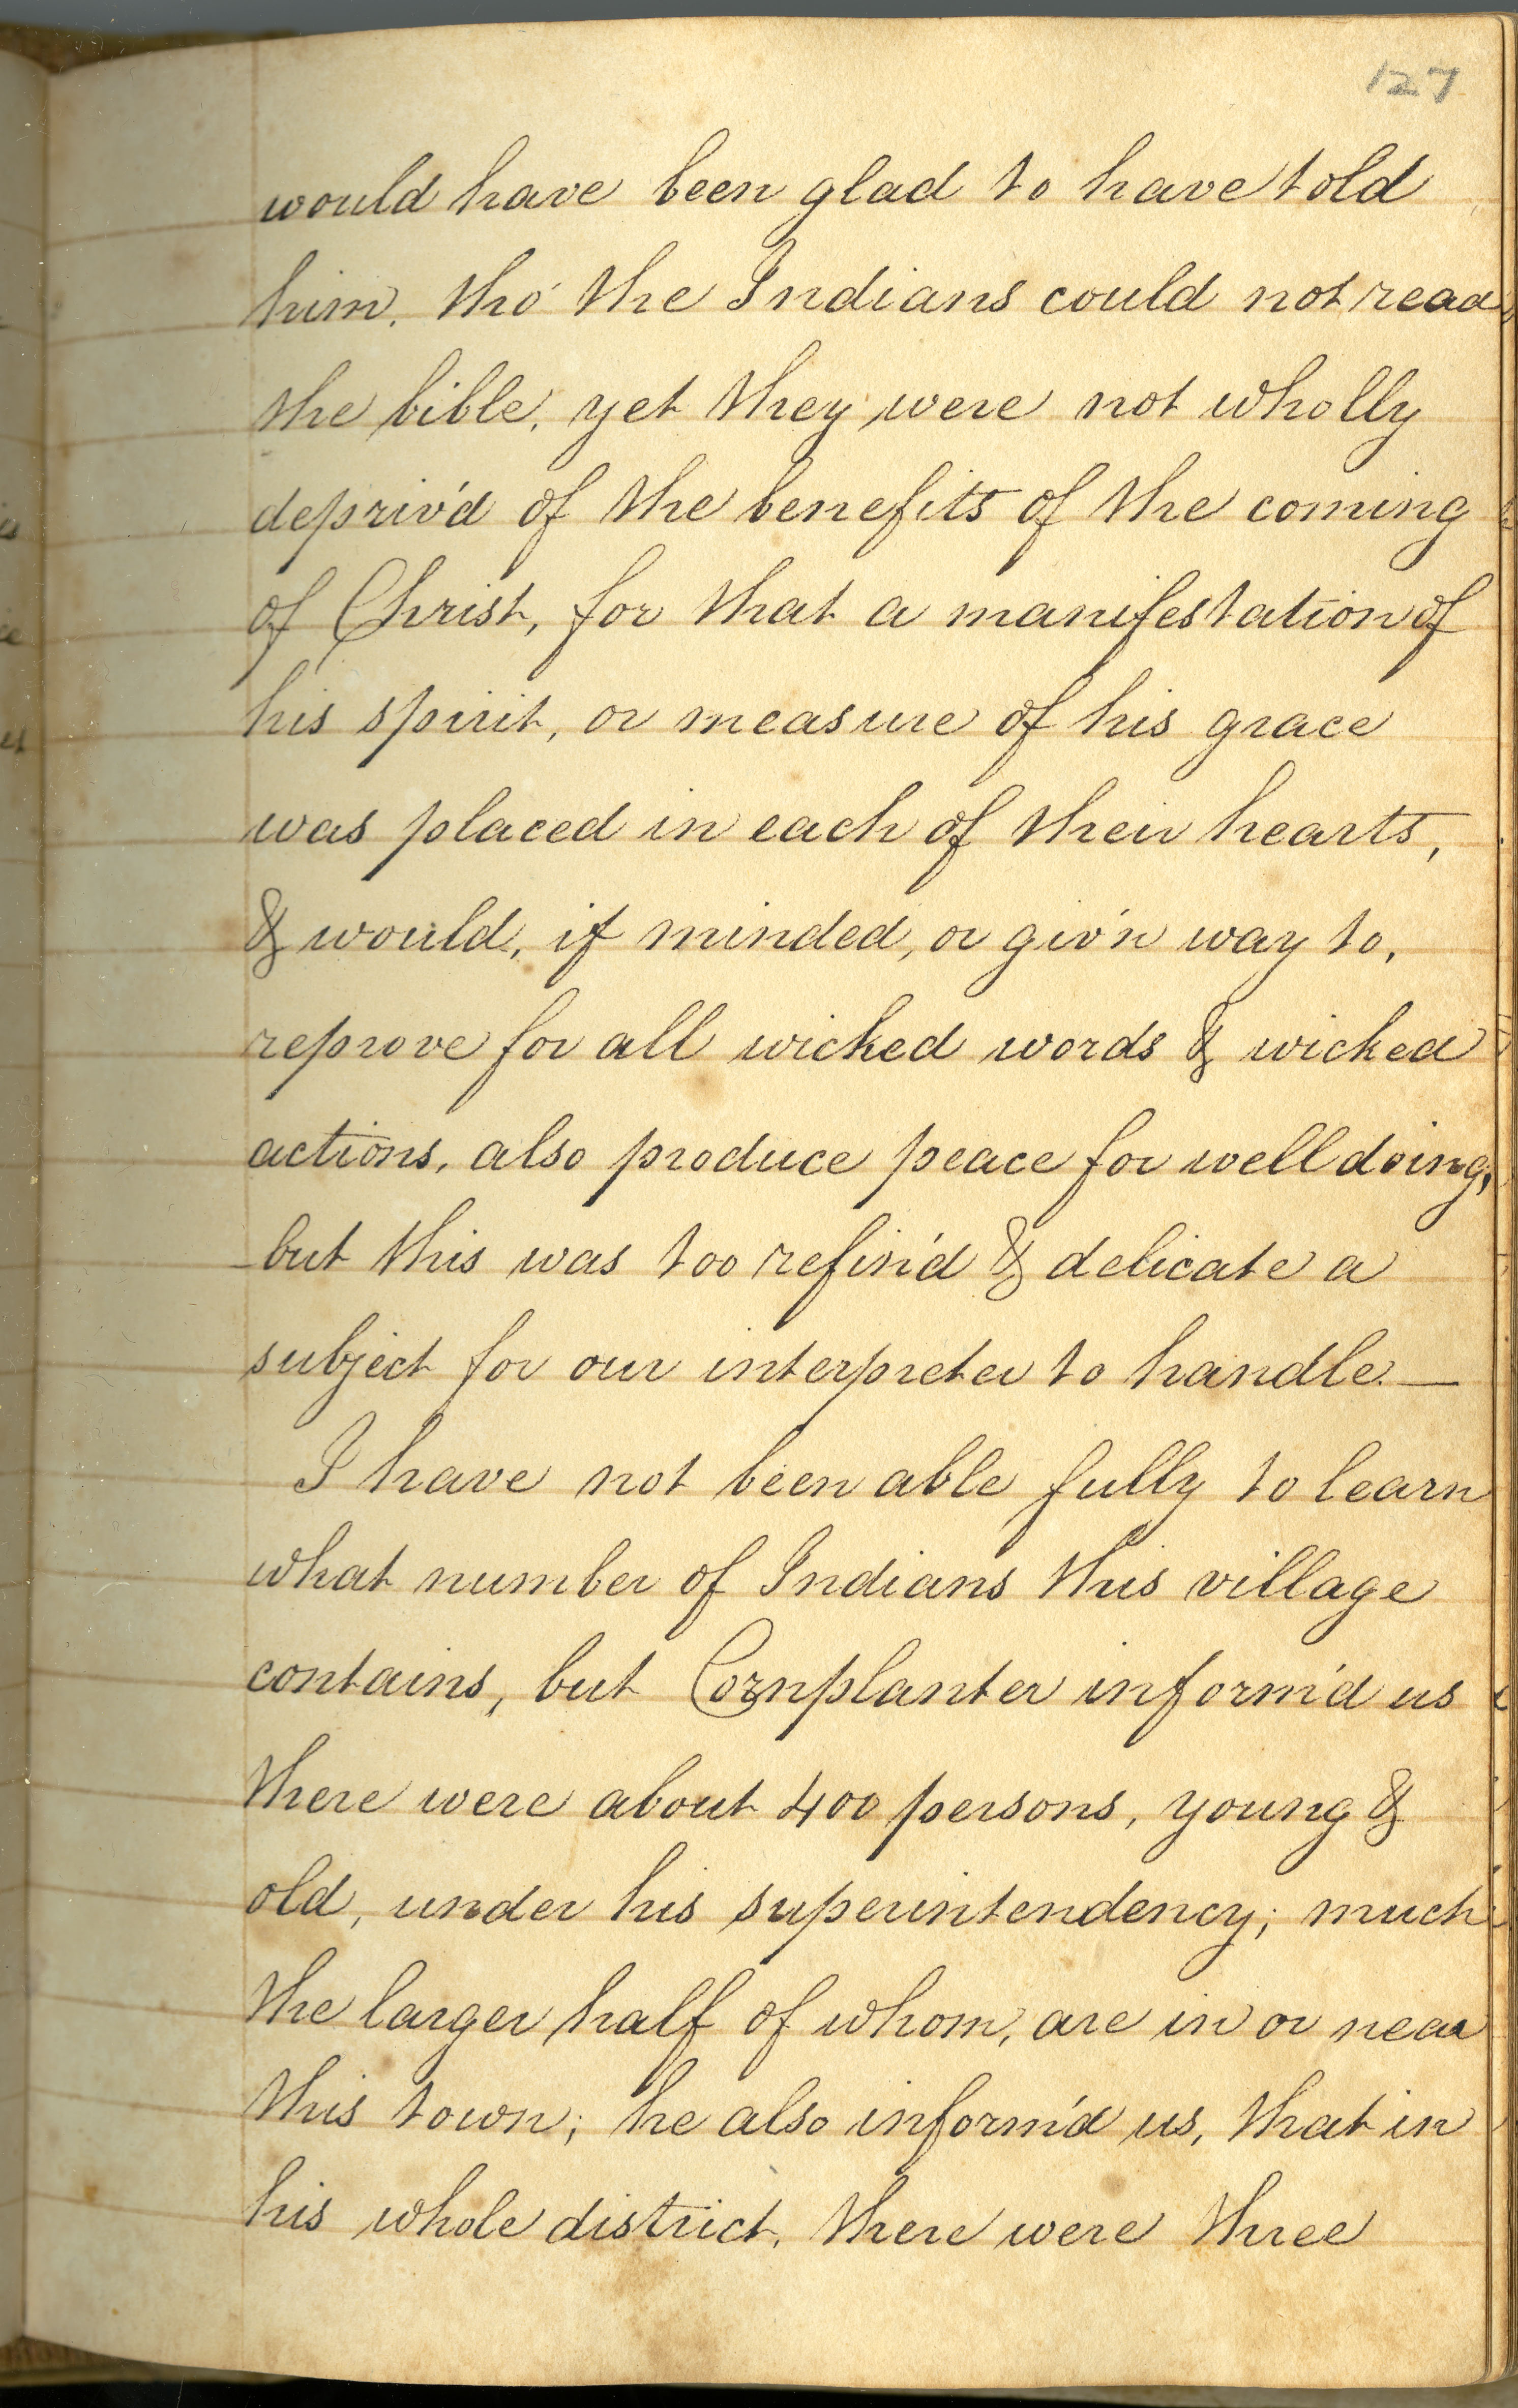 127
would have been glad to have told
him, tho' the Indians could not read
the bible, yet they were not wholly
depriv'd of the benefits of the coming
of Christ, for that a manifestation of
his spirit, or measure of his grace
was placed in each of their hearts,
& would, if minded, or giv'n way to,
reprove for all wicked words & wicked
actions, also produce peace for well doing,
but this was too refin'd & delicate a
subject for our interpreter to handle.—
I have not been able fully to learn
what number of Indians this village
contains, but Cornplanter inform'd us
there were about 400 persons, young &
old, under his superintendency; much
the larger half of whom, are in or near
this town; he also inform'd us, that in
his whole district, there were three